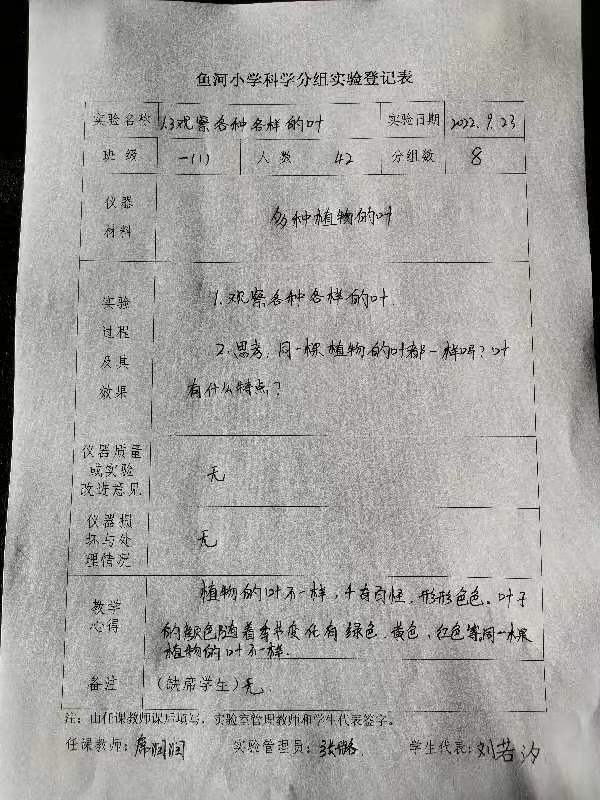 鱼河小学科学分组实验登记表
实验名称 1.3观察各种各样的叶 实验日期 2022.9.23
班 级 一(1) 人 数 42 分组数 8
仪器
材料
多种植物的叶
实验
过程
及其
效果
1.观察各种各样的叶.
2.思考:同一棵植物的叶都一样吗?叶
有什么特点?
仪器质量
或实验
改进意见
无
仪器损
坏与处
理情况
无
教学
心得
植物的叶不一样,千奇百怪,形形色色。叶子
的颜色随着季节变化有绿色,黄色,红色等,同一棵
植物的叶不一样.
备注 (缺席学生)无
注:由任课教师课后填写,实验室管理教师和学生代表签字。
任课教师: 润润 实验管理员: 学生代表:刘若汐